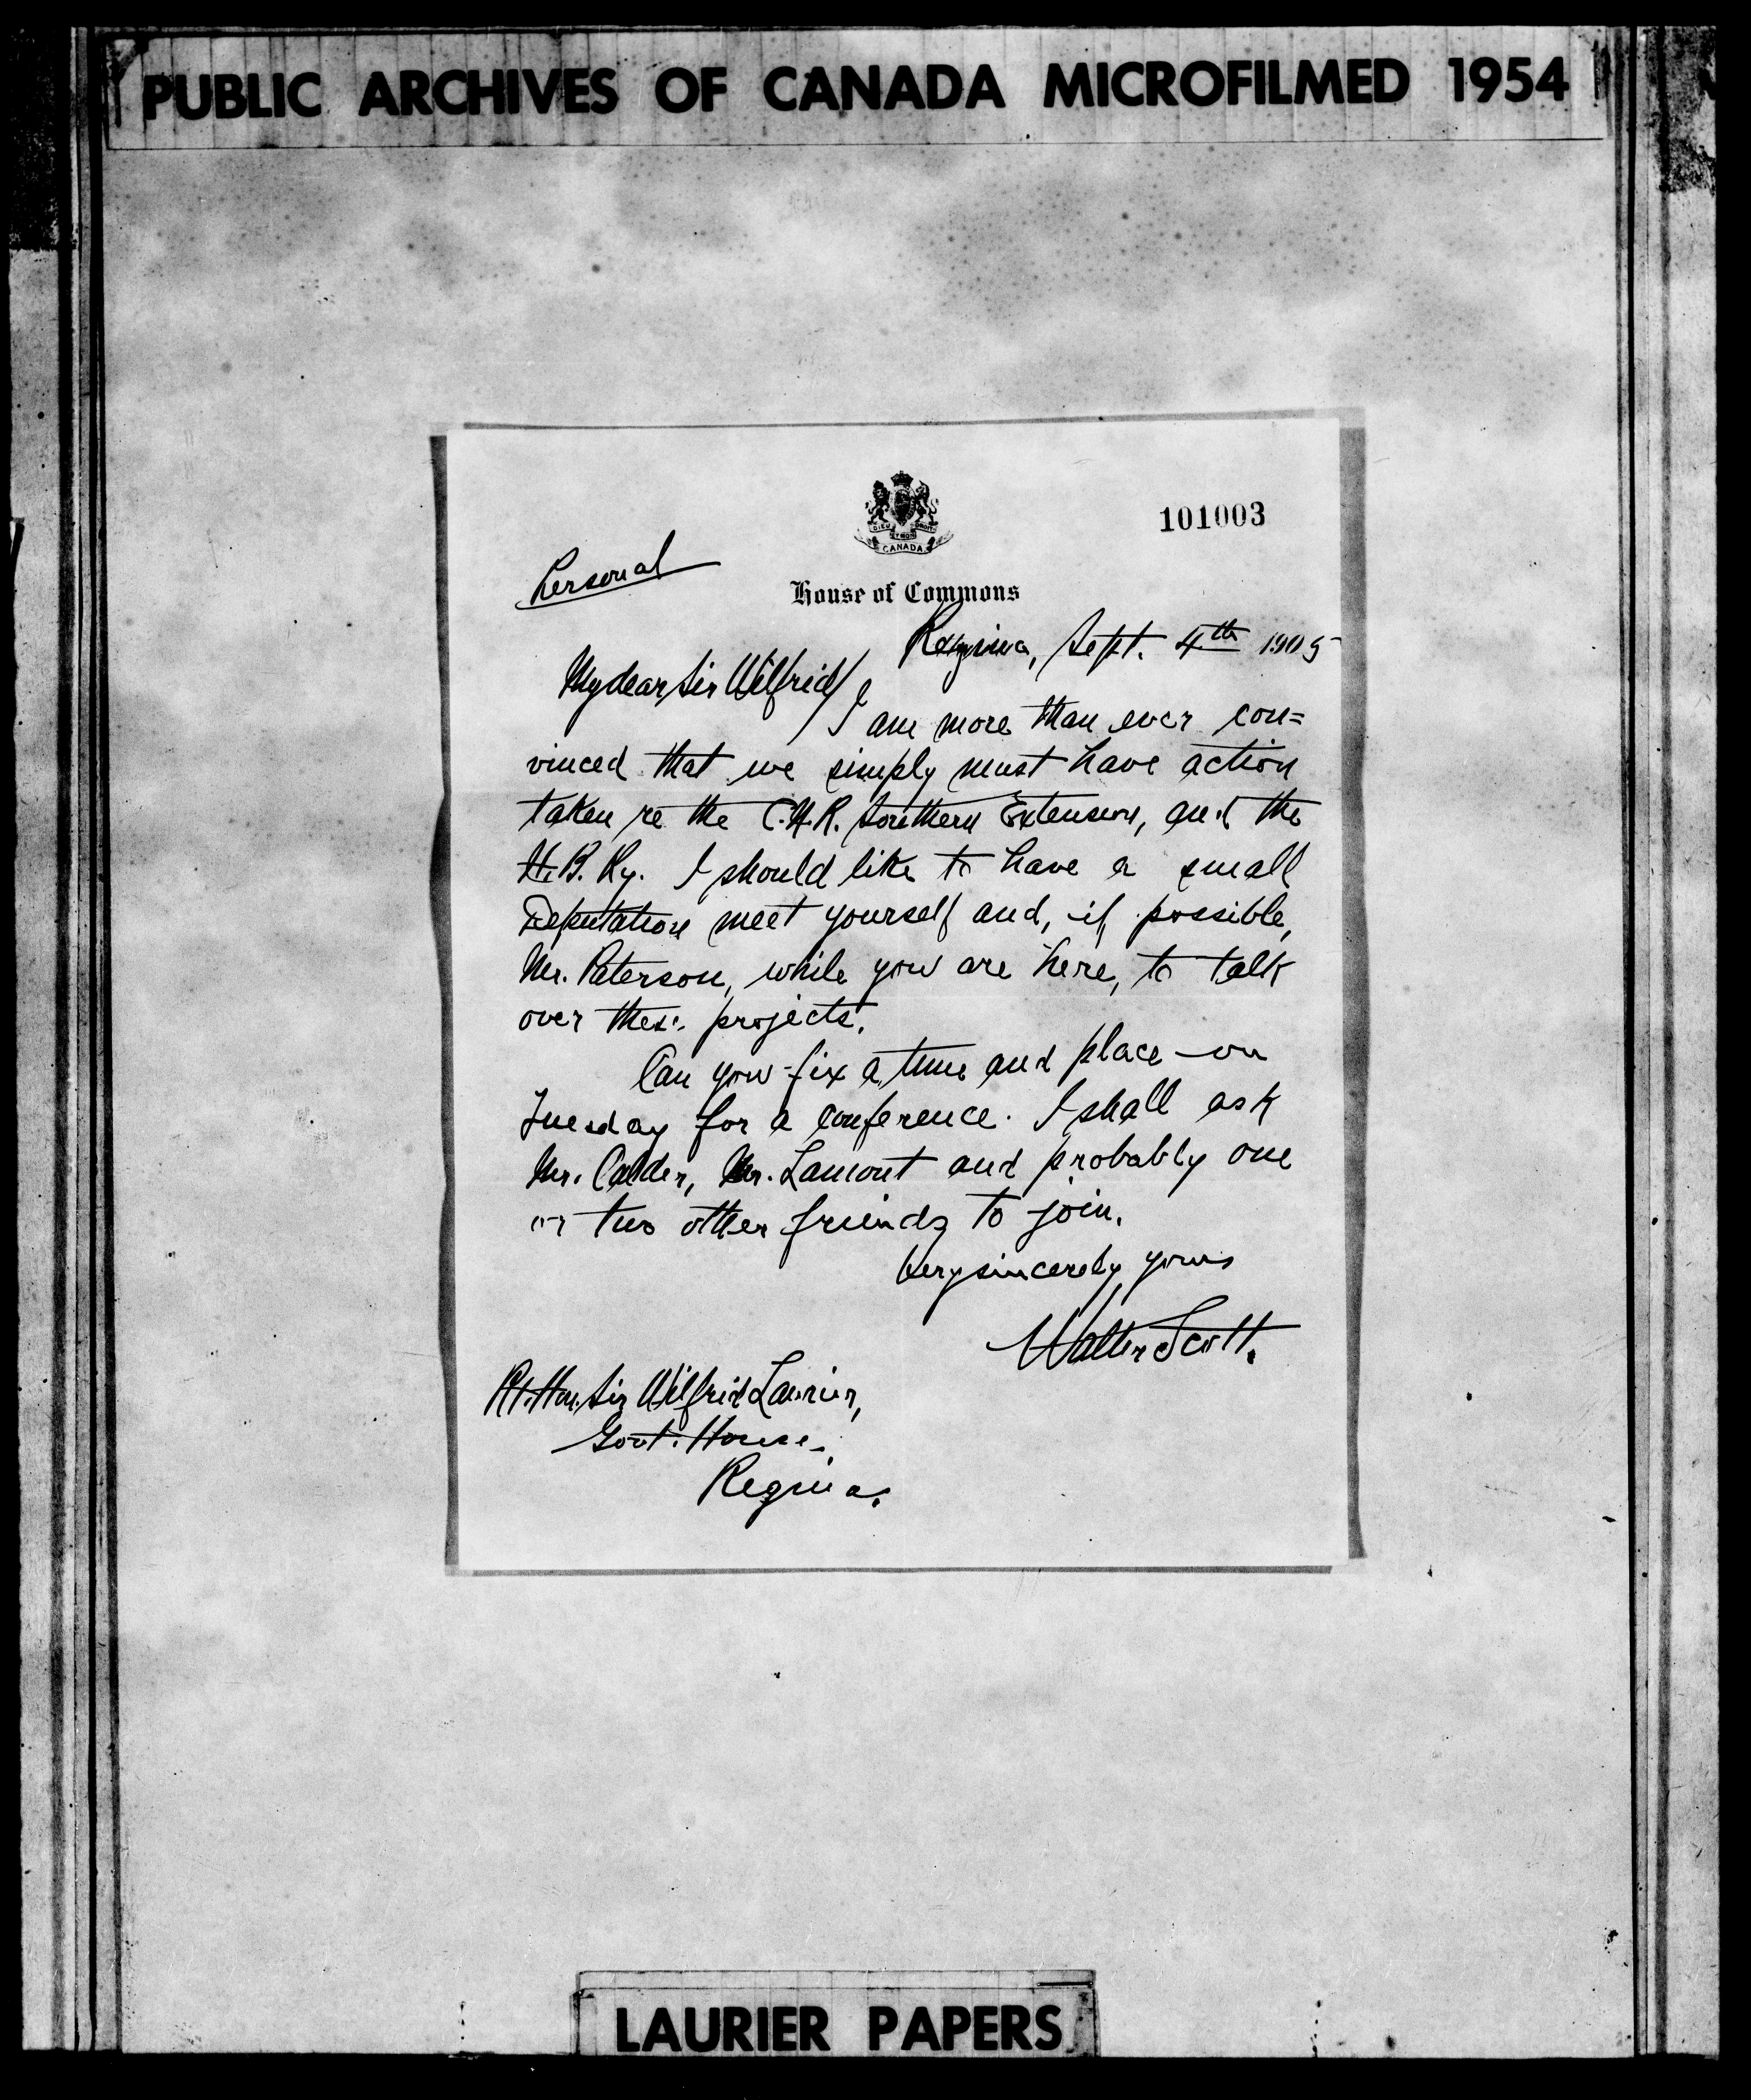 PUBLIC ARCHIVES OF CANADA MICROFILMED 1954
101003
DIEU ET MON DROIT
CANADA
Personal
House of Commons
Regina, Sept. 4th 1905
My dear Sir Wilfrid/
I am more than ever con=
vinced that we simply must have action
taken re the C.N.R. Southern Extension, and the
H.B. Ry. I should like to have a small
Deputation meet yourself and, if possible,
Mr. Paterson, while you are here, to talk
over these projects.
Can you fix a time and place on
Tuesday for a conference. I shall ask
Mr. Calder, Mr. Lamont and probably one
or two other friends to join.
Very sincerely yours
Walter Scott.
Rt. Hon. Sir Wilfrid Laurier,
Govt. House,
Regina.
LAURIER PAPERS